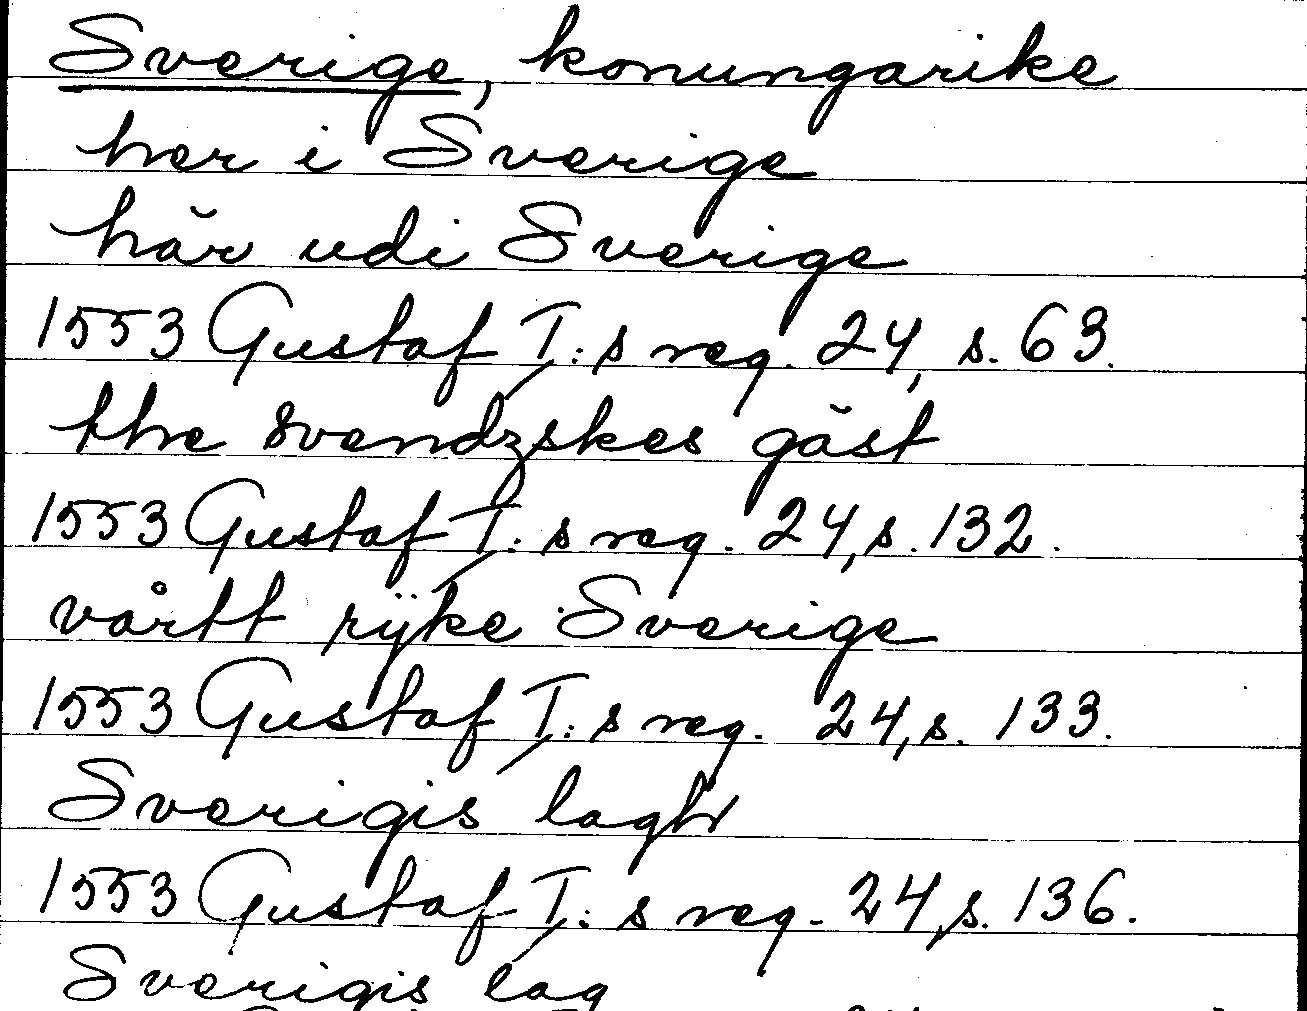 Sverige, konungarike
her i Sverige
här udi Sverige
1553 Gustaf I:s reg. 24, s. 63.
the svendzskes gäst
1553 Gustaf I:s reg. 24, s. 132.
vårtt rÿke Sverige
1553 Gustaf I:s reg. 24, s. 133.
Sverigis lagh
1553 Gustaf I:s reg. 24, s. 136.
Sverigis lag